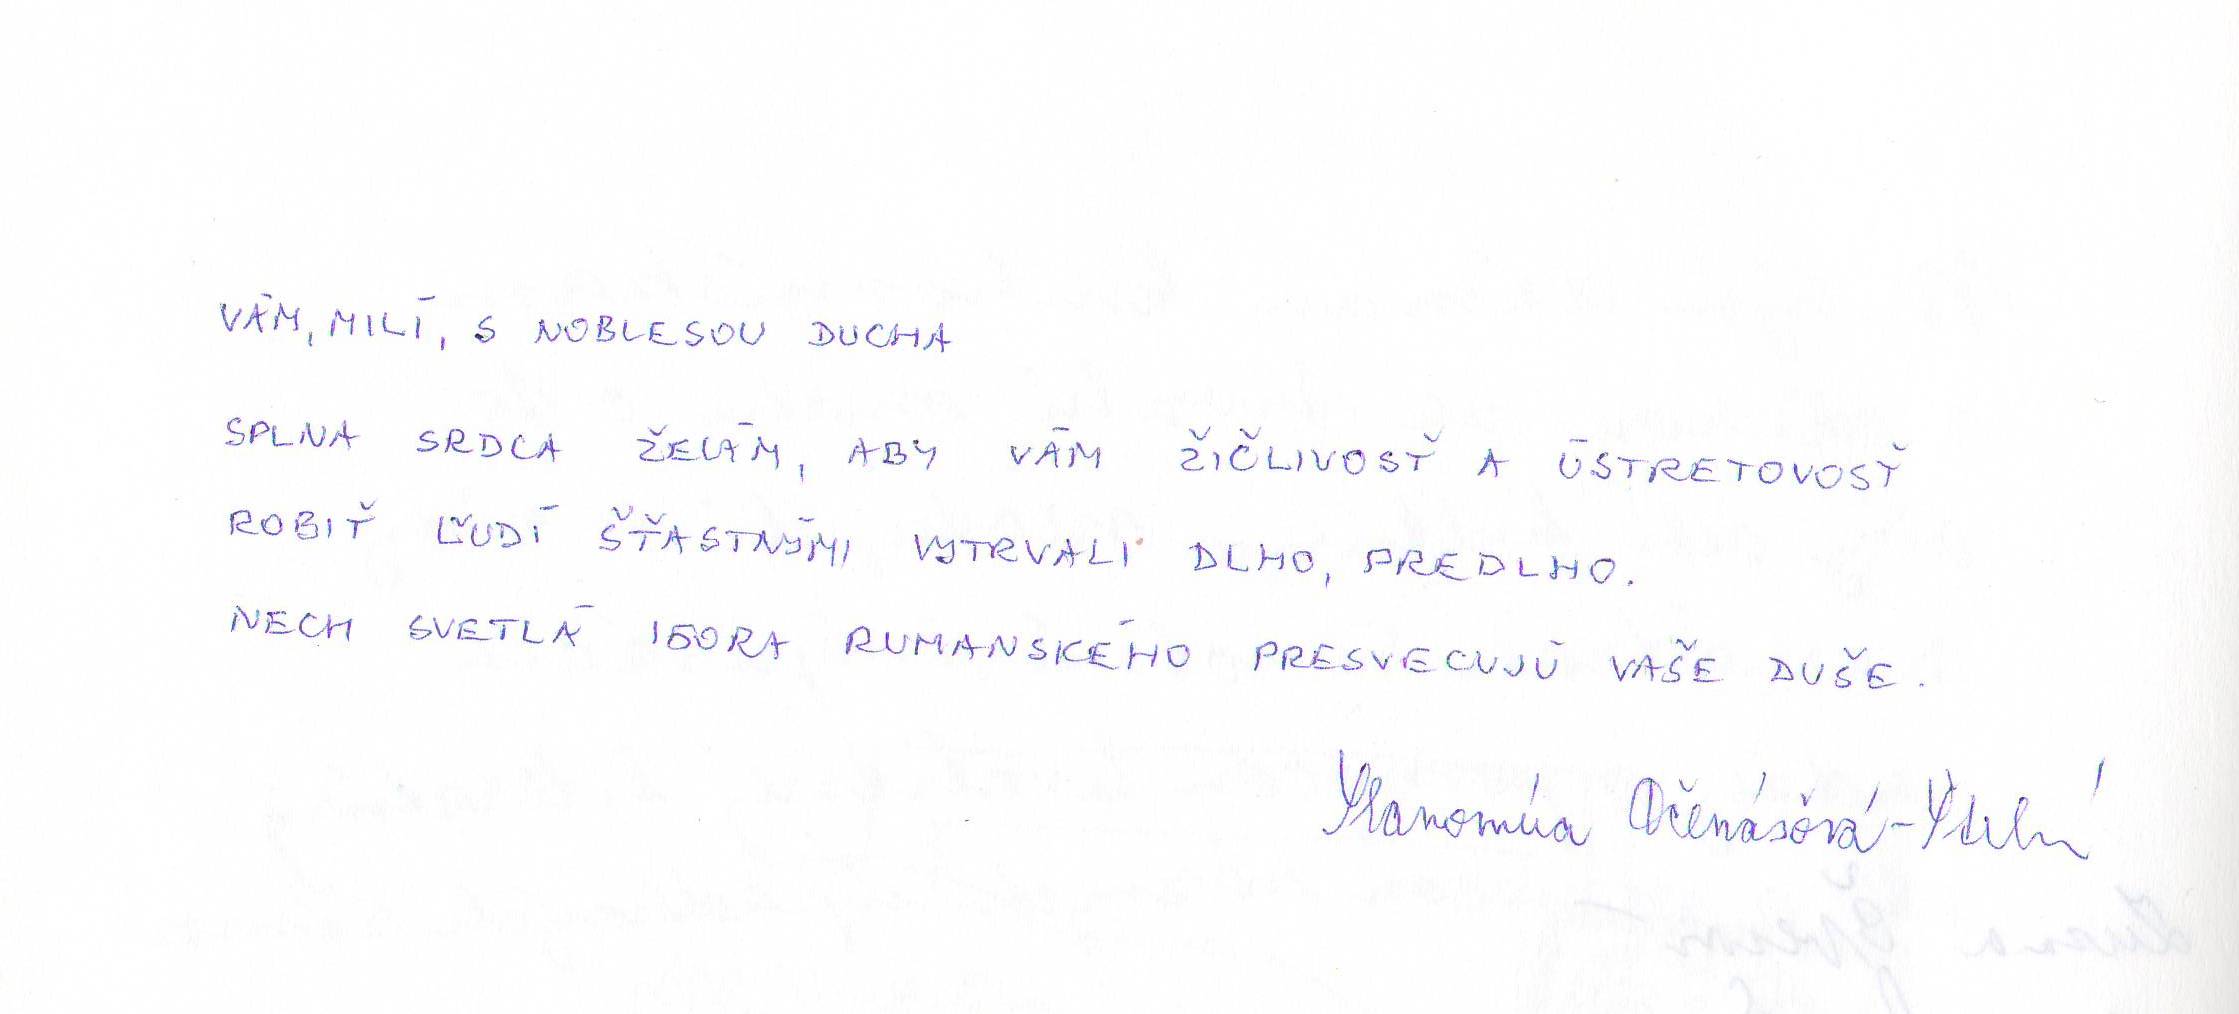 VÁM, MILÍ, S NOBLESOU DUCHA
SPLNA SRDCA ŽELÁM, ABY VÁM ŽIČLIVOSŤ A ÚSTRETOVOSŤ
ROBIŤ ĽUDÍ ŠŤASTNÝMI VYTRVALI DLHO, PREDLHO.
NECH SVETLÁ IGORA RUMANSKÉHO PRESVECUJÚ VAŠE DUŠE.
Očenášová-